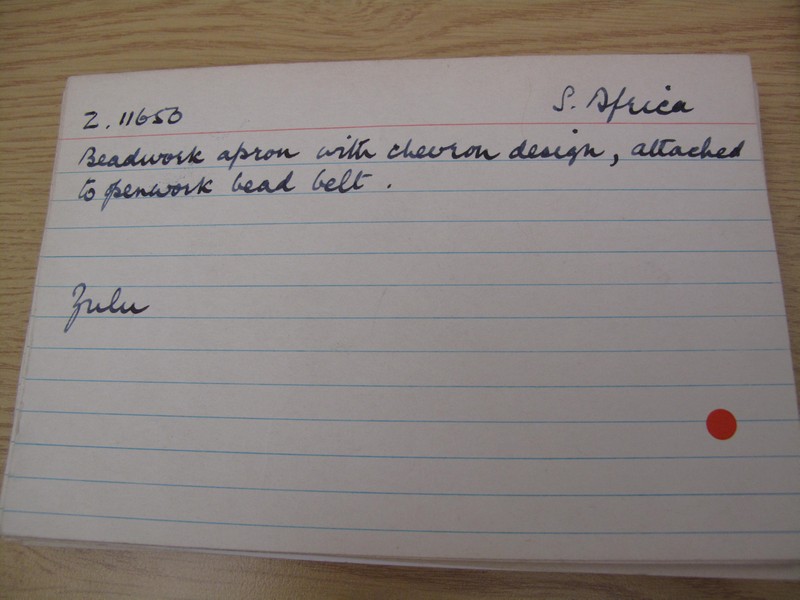 Z. 11650 S. Africa
Beadwork apron with chevron design, attached
to openwork bead belt.
Zulu